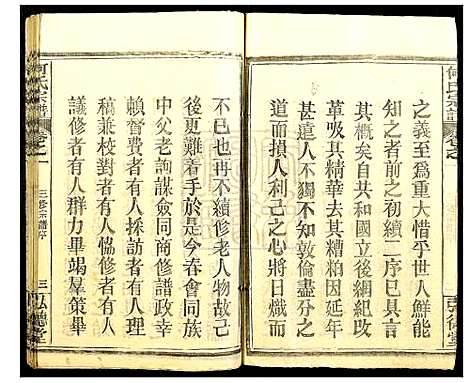 何氏宗譜
之義至爲重大惜乎世人鮮能
知之者前之初續二序已具言
其概矣自共和國立後綱紐攺
革吸其精華去其糟粕因延年
甚遠人不獨不知敦倫盡分之
道而損人利己之心將日熾而
不已也再不續修老人物故己
後更難着手於是今春會同族
中父老詢謀僉同商修譜政幸
賴督費者有人採訪者有人理
稿兼校對者有人騰費者有人
議修者有人群力畢竭羣策畢
何氏宗譜
卷之一
三修宗譜序
三
弘德堂